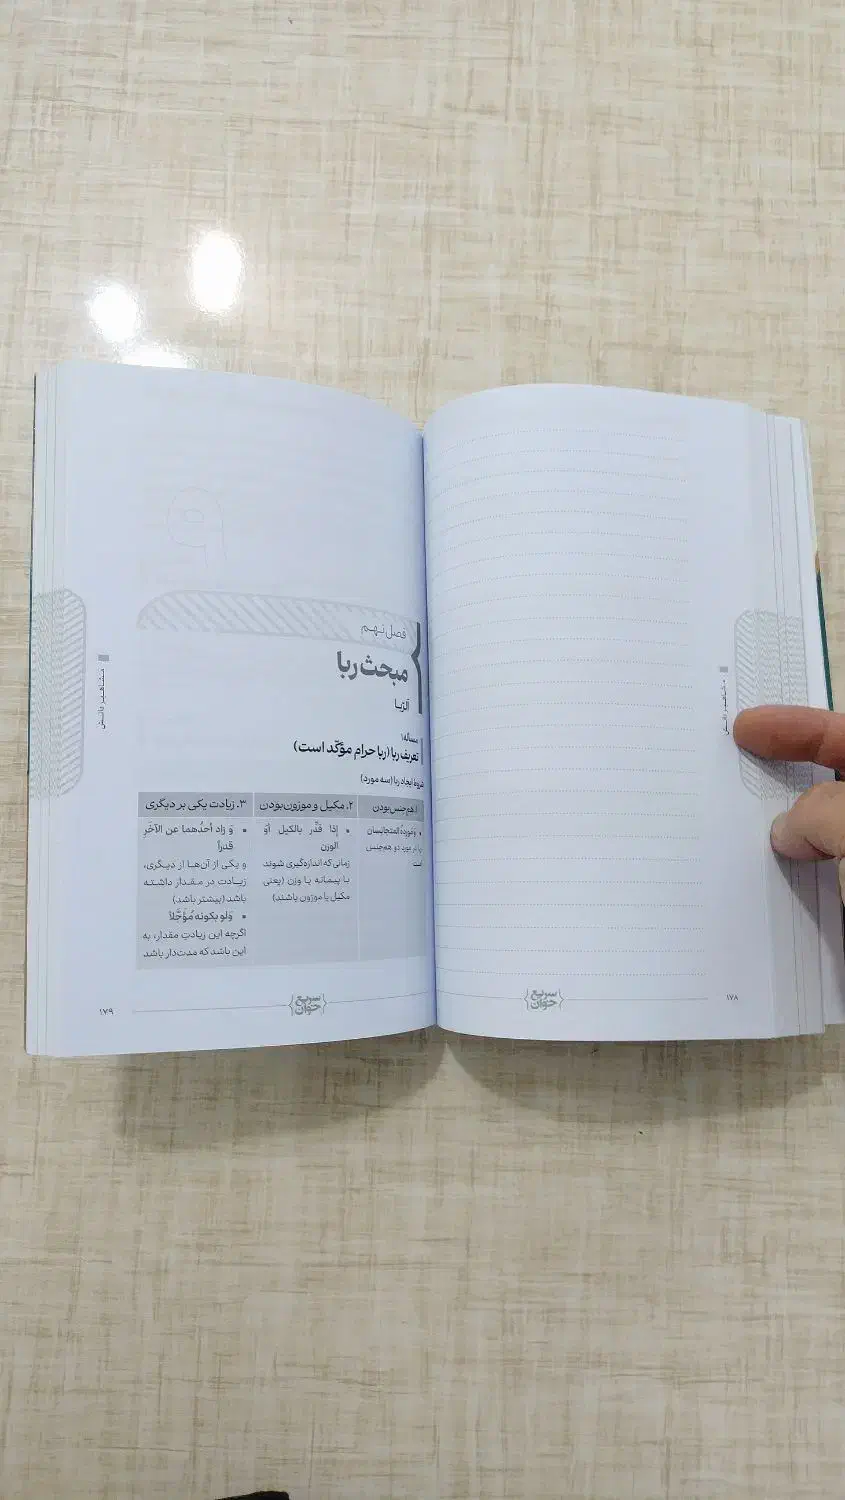 مشاهیر دانش
سریع
خوان
۱۷۸
۹
فصل نهم
مبحث ربا
الرّبا
مسأله۱
تعریف ربا (ربا حرام مؤکّد است)
شروط ایجاد ربا (سه مورد)
۱. هم‌جنس‌بودن
وَ موردهُ المتجانسان
ربا در مورد دو هم‌جنس
است
۲. مکیل و موزون‌بودن
إذا قُدِّر بالکیل أوَ
الوزن
زمانی که اندازه‌گیری شوند
با پیمانه یا وزن (یعنی
مکیل یا موزون باشند)
۳. زیادت یکی بر دیگری
وَ زاد أحدُهما عن الآخَرِ
قدراً
و یکی از آن‌ها از دیگری،
زیادت در مقدار داشته
باشد (بیشتر باشد)
وَلو بکونه مُؤَجَّلاً
اگرچه این زیادتِ مقدار، به
این باشد که مدت‌دار باشد.
مشاهیر دانش
سریع
خوان
۱۷۹